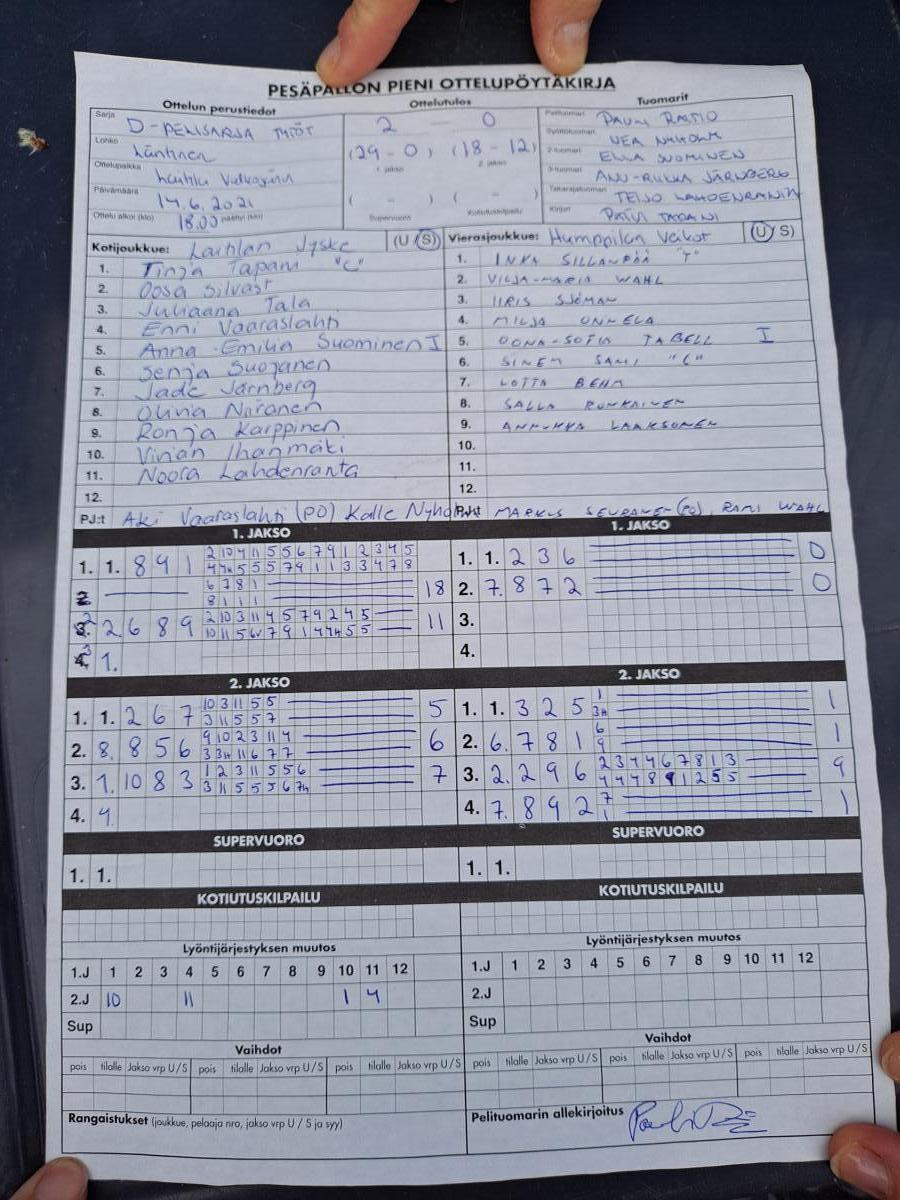 PESÄPALLON PIENI OTTELUPÖYTÄKIRJA
Ottelun perustiedot Ottelutulos Tuomarit
Sarja D-PENISARJA TYTÖT 2 - 0 Pelituomari PAULI RATIO
Lohko Läntinen (29 - 0) (18 - 12) Syöttötuomari NEA NYHOLM
1. jakso 2. jakso 2-tuomari ELLA SUOMINEN
Ottelupaikka Laitila 3-tuomari ANU-RIIKKA JÄRNBERG
Päivämäärä 14.6.2021 ( - ) ( - ) Takarajatuomari TEIJO LAHDENRANTA
Ottelu alkoi (klo) 18.00 päättyi (klo) Supervuoro Kotiutuskilpailu Kirjuri PÄIVI TAPANI
Kotijoukkue: Laitilan Jyske (U / S) Vierasjoukkue: Humppilan Veikot (U / S)
1. Tinja Tapani "C" 1. INKA SILLANPÄÄ "T"
2. Oosa Silvast 2. VILJA-MARIA WAHL
3. Juliaana Tala 3. IIRIS SJÖMAN
4. Enni Vaaraslahti 4. MILJA UNNELA
5. Anna-Emilia Suominen I 5. OONA-SOFIA TABELL I
6. Senja Suojanen 6. SINEM SAMI "C"
7. Jade Järnberg 7. LOTTA BEHM
8. Olivia Niiranen 8. SALLA RONKAINEN
9. Ronja Karppinen 9. ANNUKKA LAAKSONEN
10. Vivian Ihanmäki 10.
11. Noora Lahdenranta 11.
12. 12.
PJ:t Aki Vaaraslahti (PO) Kalle Nyholm PJ:t MARKUS (PO), RAMI WAHL
1. JAKSO 1. JAKSO
1. 1. 8 9 1 2 10 4 11 5 5 6 7 9 1 2 3 4 5 1. 1. 2 3 6 0
5 5 5 7 9 1 1 3 3 4 7 8
2 6 7 8 1 18 2. 7. 8 7 2 0
8 1 1 1
2 2. 6 8 9 2 10 3 11 4 5 7 9 2 4 5 11 3.
10 11 5 7 9 1 4 5 5
3 1. 4.
2. JAKSO 2. JAKSO
1. 1. 2 6 7 10 3 11 5 5 5 1. 1. 3 2 5 1 1
3 11 5 5 7 3H
2. 8. 8 5 6 9 10 2 3 11 4 6 2. 6. 7 8 1 6 1
3 3H 11 6 7 7 9
3. 1. 10 8 3 1 2 3 11 5 5 6 7 3. 2. 2 9 6 2 3 4 4 6 7 8 1 3 9
3 11 5 5 5 6 7H 4 4 4 8 9 1 2 5 5
4. 4. 4. 7. 8 9 2 7 1
1
SUPERVUORO SUPERVUORO
1. 1. 1. 1.
KOTIUTUSKILPAILU KOTIUTUSKILPAILU
Lyöntijärjestyksen muutos Lyöntijärjestyksen muutos
1.J 1 2 3 4 5 6 7 8 9 10 11 12 1.J 1 2 3 4 5 6 7 8 9 10 11 12
2.J 10 11 1 4 2.J
Sup Sup
Vaihdot Vaihdot
pois tilalle Jakso vrp U / S pois tilalle Jakso vrp U / S pois tilalle Jakso vrp U / S pois tilalle Jakso vrp U / S pois tilalle Jakso vrp U / S pois tilalle Jakso vrp U / S
Rangaistukset (joukkue, pelaaja nro, jakso vrp U / S ja syy) Pelituomarin allekirjoitus